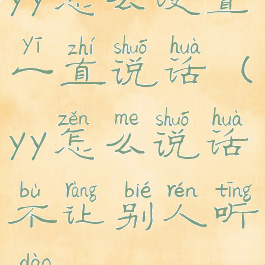 yy怎么设置
yī zhí shuō huà
一直说话(
zěn me shuō huà
yy怎么说话
bù ràng bié rén tīng
不让别人听
dào